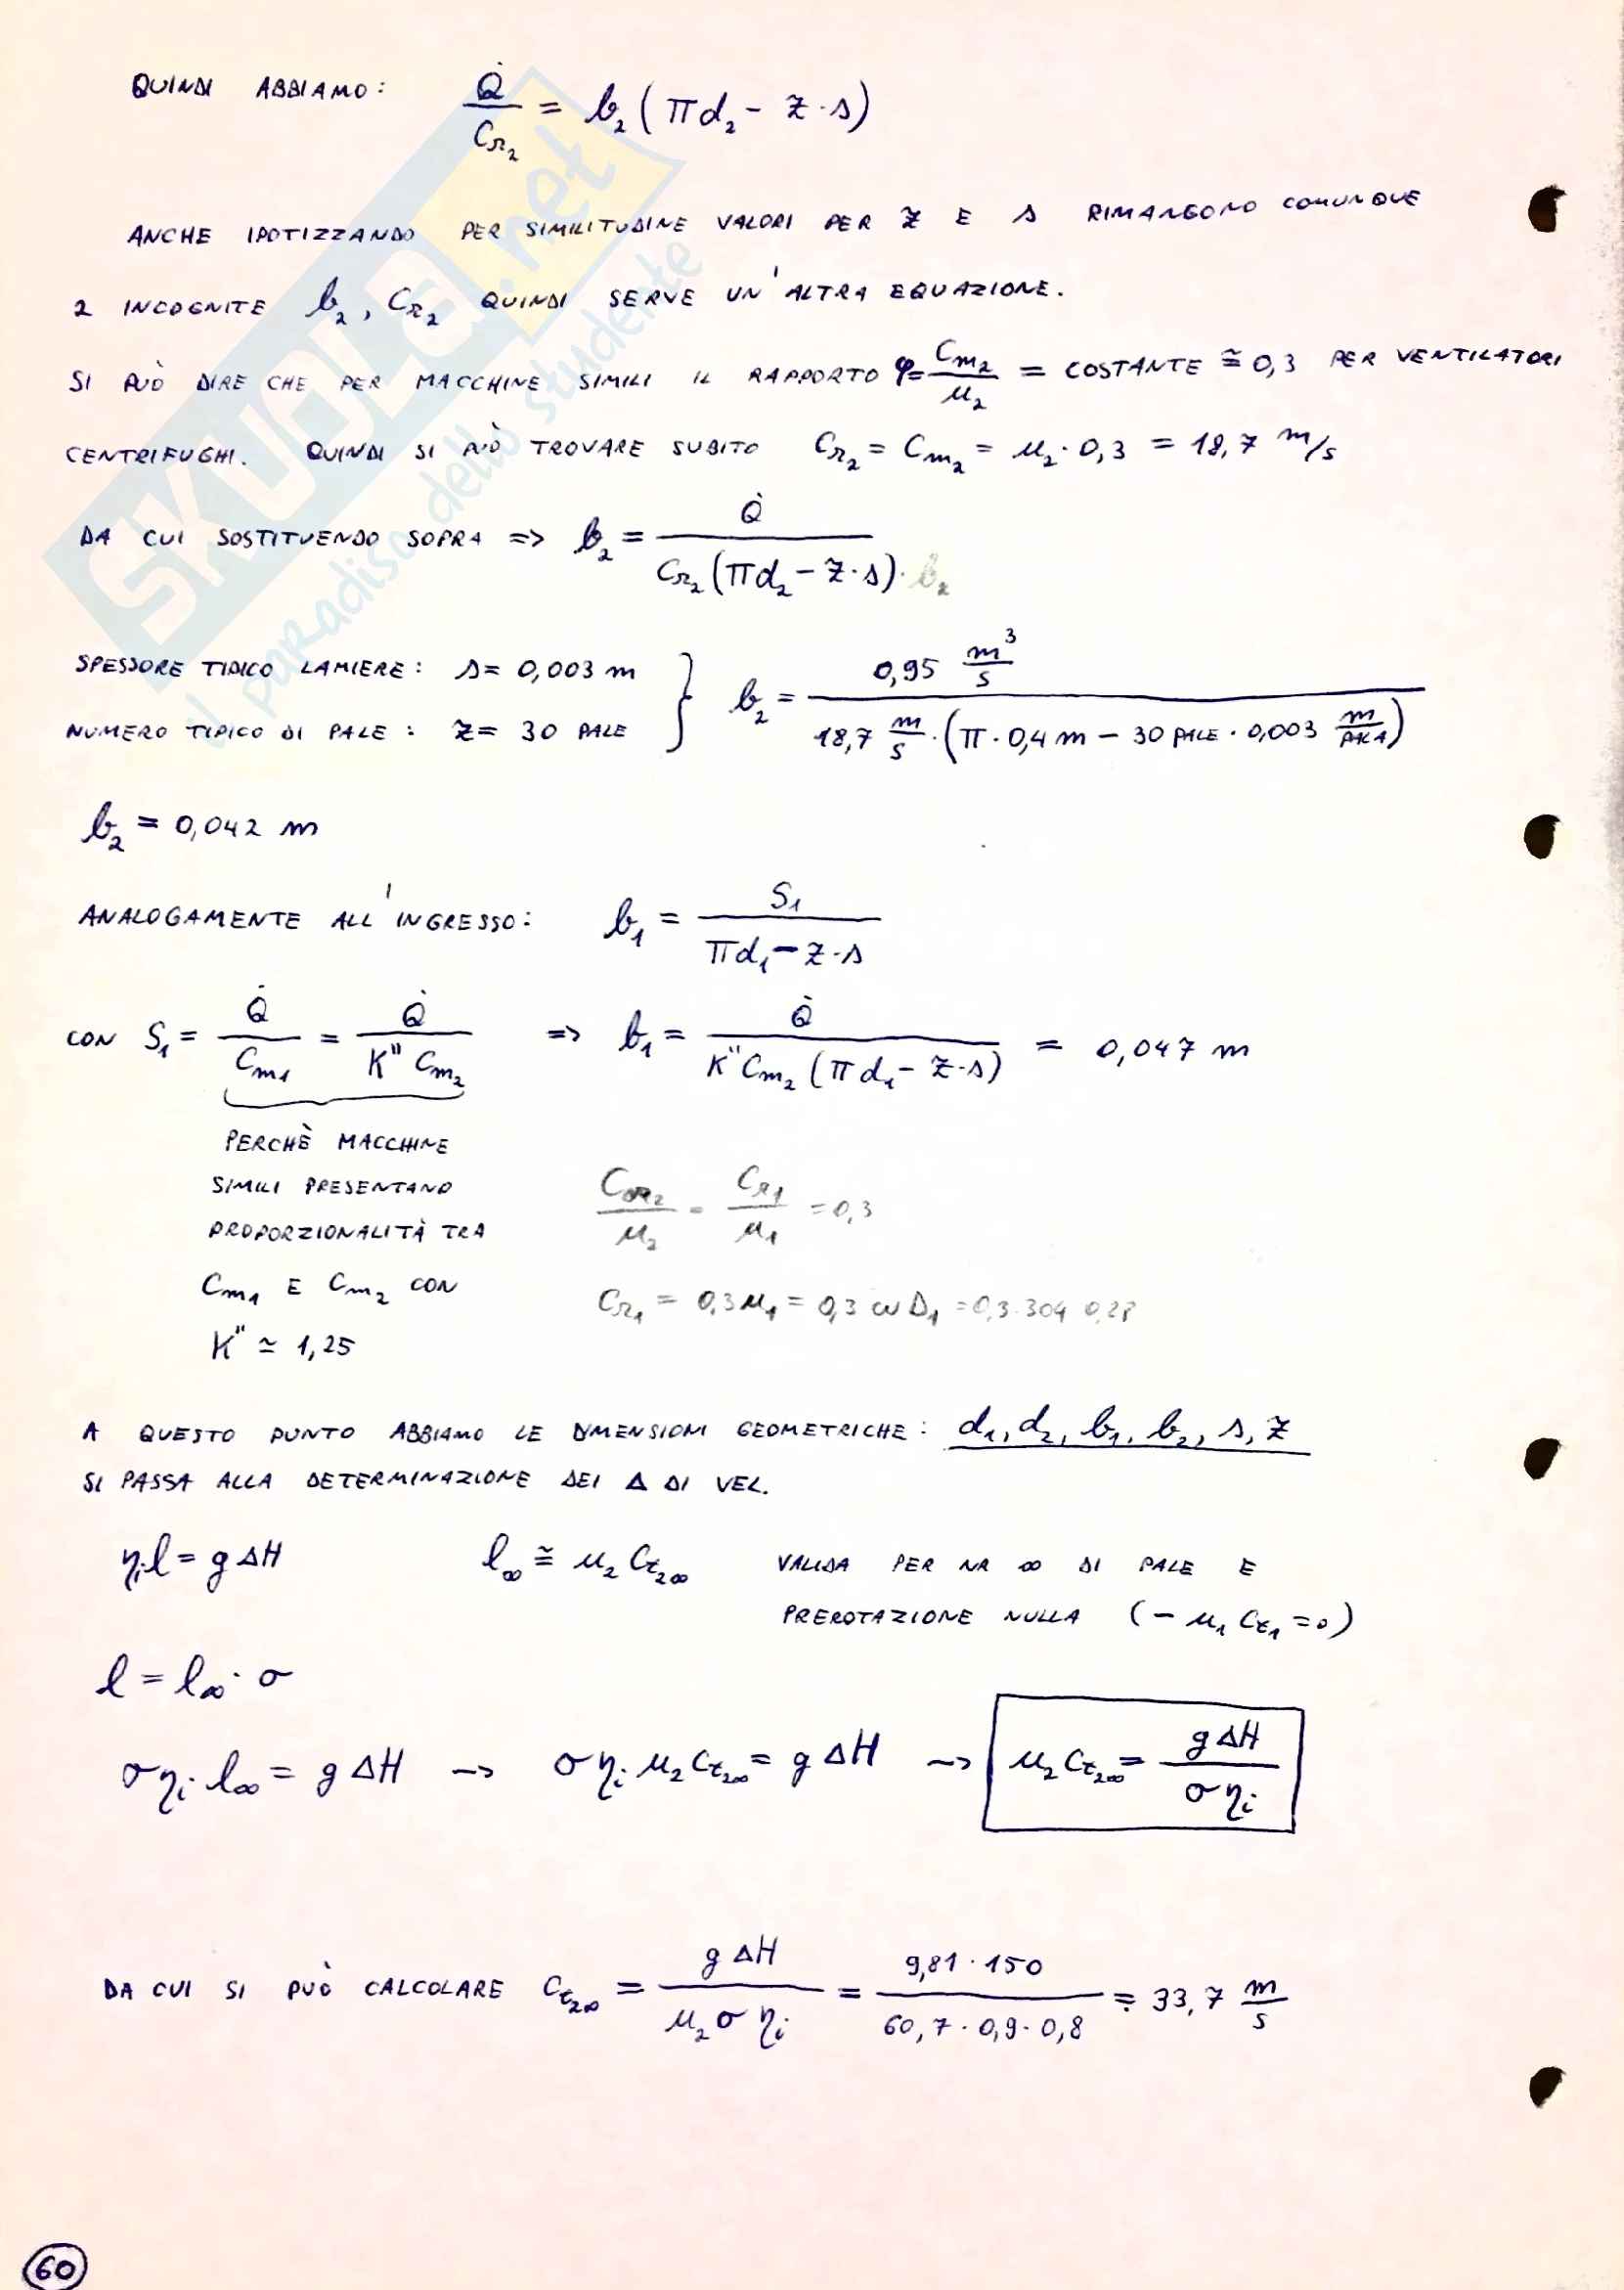 QUINDI ABBIAMO: Q̇/Cr₂ = b₂(πd₂ - z·s)
ANCHE IPOTIZZANDO PER SIMILITUDINE VALORI PER z E s RIMANGONO COMUNQUE
2 INCOGNITE b₂, Cr₂ QUINDI SERVE UN'ALTRA EQUAZIONE.
SI PUÒ DIRE CHE PER MACCHINE SIMILI IL RAPPORTO φ = Cm₂/u₂ = COSTANTE ≅ 0,3 PER VENTILATORI
CENTRIFUGHI. QUINDI SI PUÒ TROVARE SUBITO Cr₂ = Cm₂ = u₂·0,3 = 18,7 m/s
DA CUI SOSTITUENDO SOPRA => b₂ = Q̇/(Cr₂(πd₂ - z·s)·b₂)
SPESSORE TIPICO LAMIERE: s = 0,003 m
NUMERO TIPICO DI PALE: z = 30 PALE
} b₂ = 0,95 m³/s / (18,7 m/s · (π·0,4 m - 30 PALE · 0,003 m/PALA))
b₂ = 0,042 m
ANALOGAMENTE ALL'INGRESSO: b₁ = S₁/(πd₁ - z·s)
CON S₁ = Q̇/Cm₁ = Q̇/(K" Cm₂) => b₁ = Q̇/(K" Cm₂ (πd₁ - z·s)) = 0,047 m
PERCHÈ MACCHINE
SIMILI PRESENTANO
PROPORZIONALITÀ TRA
Cm₁ E Cm₂ CON
K" ≃ 1,25
Cr₂/u₂ = Cr₁/u₁ = 0,3
Cr₁ = 0,3 u₁ = 0,3 ω D₁ = 0,3·304 0,28
A QUESTO PUNTO ABBIAMO LE DIMENSIONI GEOMETRICHE: d₁, d₂, b₁, b₂, s, z
SI PASSA ALLA DETERMINAZIONE DEI Δ DI VEL.
ηᵢl = gΔH l∞ ≅ u₂ Ct₂∞ VALIDA PER NR ∞ DI PALE E
PREROTAZIONE NULLA (- u₁ Ct₁ = 0)
l = l∞·σ
σηᵢ l∞ = gΔH → σηᵢ u₂ Ct₂∞ = gΔH → u₂ Ct₂∞ = gΔH/(σηᵢ)
DA CUI SI PUÒ CALCOLARE Ct₂∞ = gΔH/(u₂σηᵢ) = 9,81·150/(60,7·0,9·0,8) = 33,7 m/s
60
SKUOLA.net
il paradiso dello studente